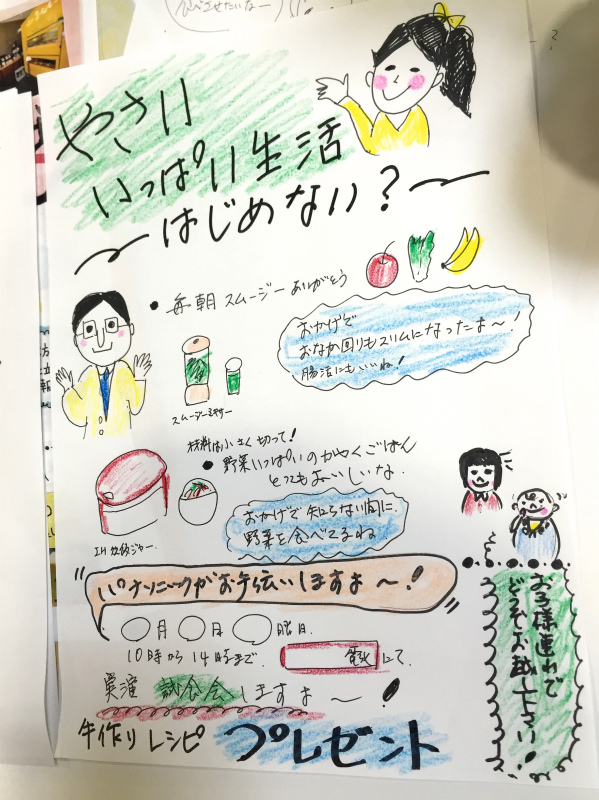 やさい
いっぱい生活
〜はじめない?〜
• 毎朝スムージーありがとう
おかげで
おなか回りもスリムになったよ〜!
腸活にもいいね!
スムージーミキサー
材料は小さく切って!
• 野菜いっぱいのかやくごはん
とってもおいしいな.
おかげで知らない間に.
野菜を食べてるね
IH炊飯ジャー.
パナソニックがお手伝いしますよ〜!
○月○日○曜日.
10時から14時まで.
にて.
実演 試食会しますよ〜!
手作りレシピ プレゼント
お子様連れで
どうぞお越し下さい!